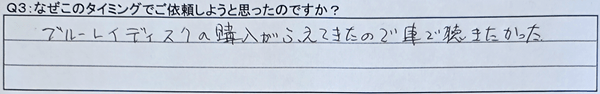 Q3：なぜこのタイミングでご依頼しようと思ったのですか？
ブルーレイディスクの購入がふえてきたので車で聴きたかった